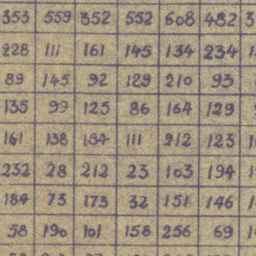 353 559 352 552 608 482
228 111 161 145 134 234
89 145 92 129 210 93
135 99 125 86 164 129
161 138 184 111 212 123
232 28 212 23 103 194
184 73 173 32 151 146
58 190 101 158 256 69